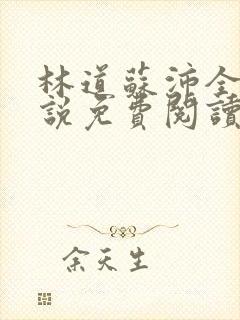 林道蘇沛全
說免費閱讀
余天生